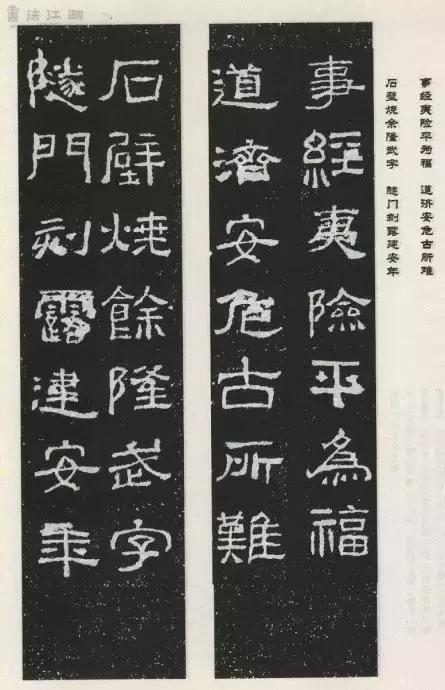 書法江湖
事经夷险平为福 道济安危古所难
石壁烧余隆武字 隧门刻露建安年
事經夷險平為福
道濟安危古所難
石壁燒餘隆武字
隧門刻露建安年